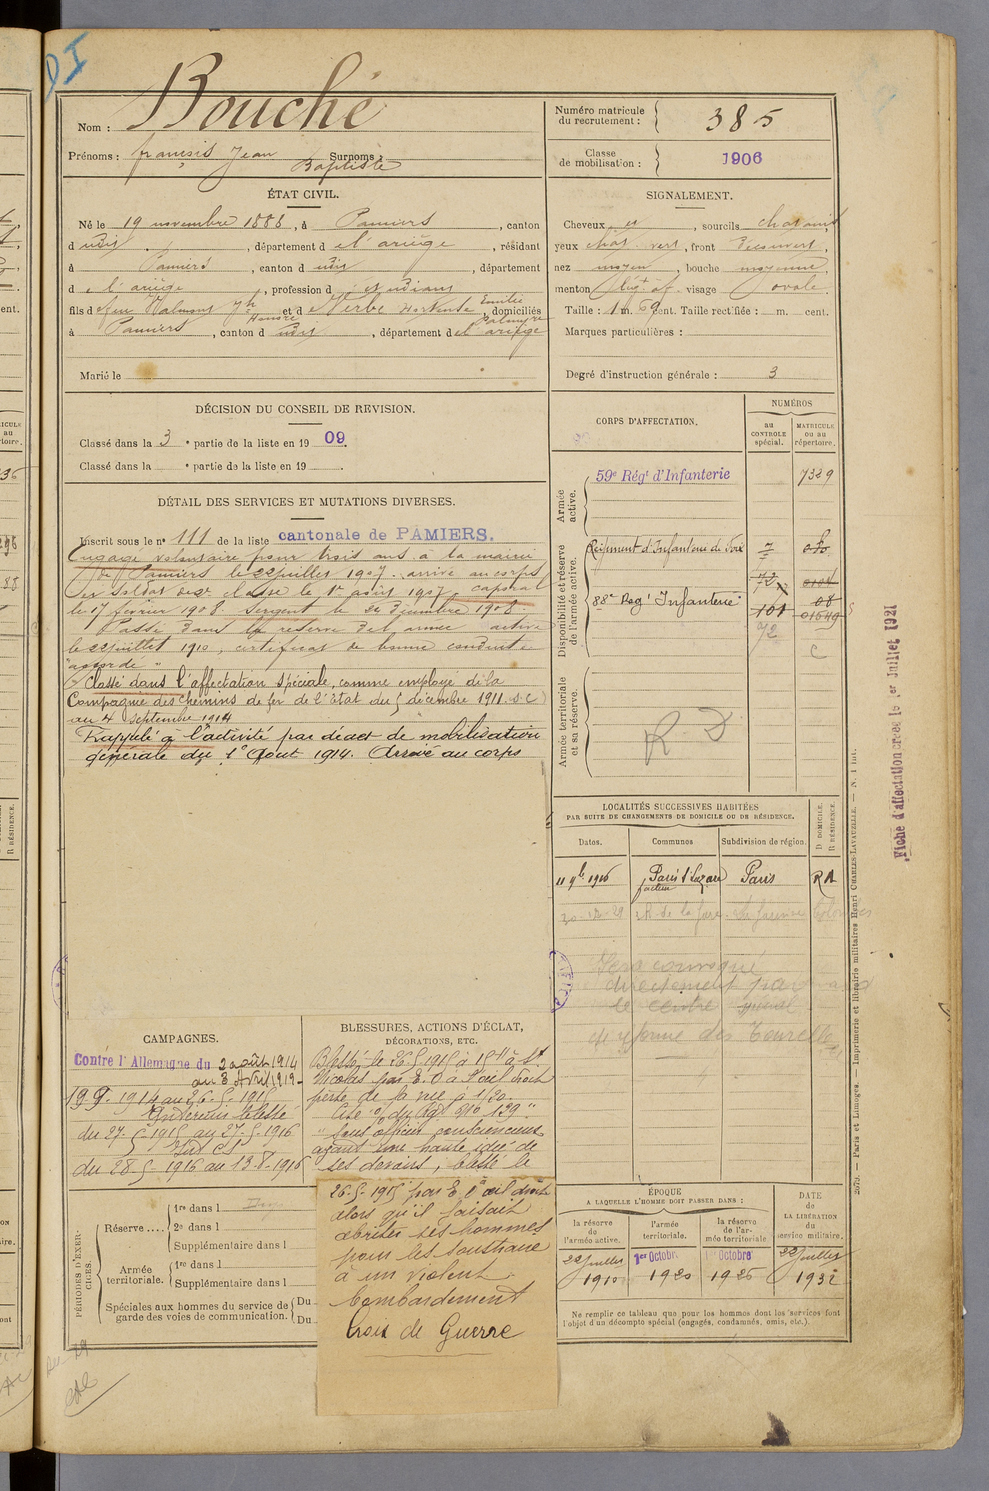 Nom : Bouché
Prénoms : françois Jean Surnoms :
Baptiste
Numéro matricule
du recrutement : 385
Classe
de mobilisation : 1906
ÉTAT CIVIL.
Né le 19 novembre 1888, à Pamiers, canton
dudit, département de l'ariège, résidant
à Pamiers, canton dudit, département
de l'ariège, profession d'étudiant
fils de feu Jh et de Hortense Emilie
Honoré Palmyre, domiciliés
à Pamiers, canton dudit, département de l'ariège
Marié le
SIGNALEMENT.
Cheveux et, sourcils chatains
yeux chat. vert, front Découvert,
nez moyen, bouche moyenne,
menton visage ovale.
Taille : 1 m. 69 cent. Taille rectifiée : m. cent.
Marques particulières :
Degré d'instruction générale : 3
DÉCISION DU CONSEIL DE REVISION.
Classé dans la 3e partie de la liste en 1909.
Classé dans la e partie de la liste en 19 .
DÉTAIL DES SERVICES ET MUTATIONS DIVERSES.
Inscrit sous le no 111 de la liste cantonale de PAMIERS.
Engagé volontaire pour trois ans à la mairie
de Pamiers le 22 juillet 1907. arrivé au corps
et soldat de 2e classe le 1er août 1907, caporal
le 17 février 1908. Sergent le 20 Décembre 1908.
Passé dans la réserve de l'armée active
le 22 juillet 1910, certificat de bonne conduite
"accordé"
Classé dans l'affectation spéciale, comme employé de la
Compagnie des Chemins de fer de l'État du 5 décembre 1911. s.c
au 4 septembre 1914
Rappelé à l'activité par décret de mobilisation
générale du 1er Aout 1914. Arrivé au corps
CORPS D'AFFECTATION.
NUMÉROS
au
CONTROLE
spécial.
MATRICULE
OU AU
répertoire.
Armée
active.
59e Régt d'Infanterie 7329
Disponibilité et réserve
de l'armée active.
Régiment d'Infanterie de Foix
88e Régt Infanterie
101 01549
72 C
Armée territoriale
et sa réserve.
R D
LOCALITÉS SUCCESSIVES HABITÉES
PAR SUITE DE CHANGEMENTS DE DOMICILE OU DE RÉSIDENCE.
Dates. Communes Subdivision de région. D DOMICILE. R RÉSIDENCE.
11 9bre 1916 Paris St Lazare Paris R
facteur
R. de la gare
Sera convoqué
directement par
le centre spécial
de réforme des Tourelles
CAMPAGNES.
Contre l'Allemagne du 2 août 1914
au 8 Avril 1919
1914 au 26.5.1915
Intérieur blessé
du 27.5.1915 au 27.5.1916
du 28.5.1916 au 13.8.1916
BLESSURES, ACTIONS D'ÉCLAT,
DÉCORATIONS, ETC.
Blessé le 26.5.1915 à 15h à St
Nicolas par E. O à l'œil droit
perte de la vue à 1/20.
Cité O/ du Régt No 139 "
"Sous officier consciencieux
ayant une haute idée de
ses devoirs, blessé le
26.5.1915 par E. à l'œil droit
alors qu'il faisait
abriter ses hommes
pour les soustraire
à un violent
bombardement
Croix de Guerre
PÉRIODES D'EXERCICES.
Réserve ....
1re dans l
2e dans l
Supplémentaire dans l
Armée
territoriale.
1re dans l
Supplémentaire dans l
Spéciales aux hommes du service de
garde des voies de communication.
Du
Du
ÉPOQUE
A LAQUELLE L'HOMME DOIT PASSER DANS :
la réserve
de
l'armée active.
l'armée
territoriale.
la réserve
de l'ar-
mée territoriale
DATE
de
LA LIBÉRATION
du
service militaire.
22 juillet 1910
1er Octobr. 1920
1er Octobre 1926
22 juillet 1932
Ne remplir ce tableau que pour les hommes dont les services font
l'objet d'un décompte spécial (engagés, condamnés, omis, etc.).
Fiche d'affectation créée le 1er Juillet 1921
Paris et Limoges. — Imprimerie et librairie militaires Henri CHARLES-LAVAUZELLE. — N. 1 int.